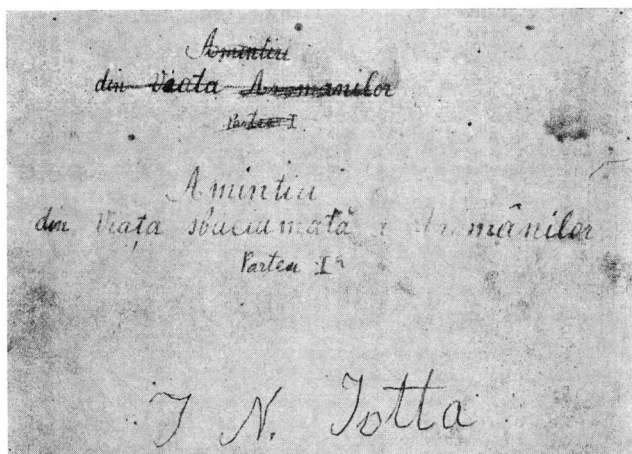 Amintiri
din Viata Aromanilor
Partea I
Amintiri
din Viaţa sbuciumată a Aromânilor
Partea Iª
I N. Iotta